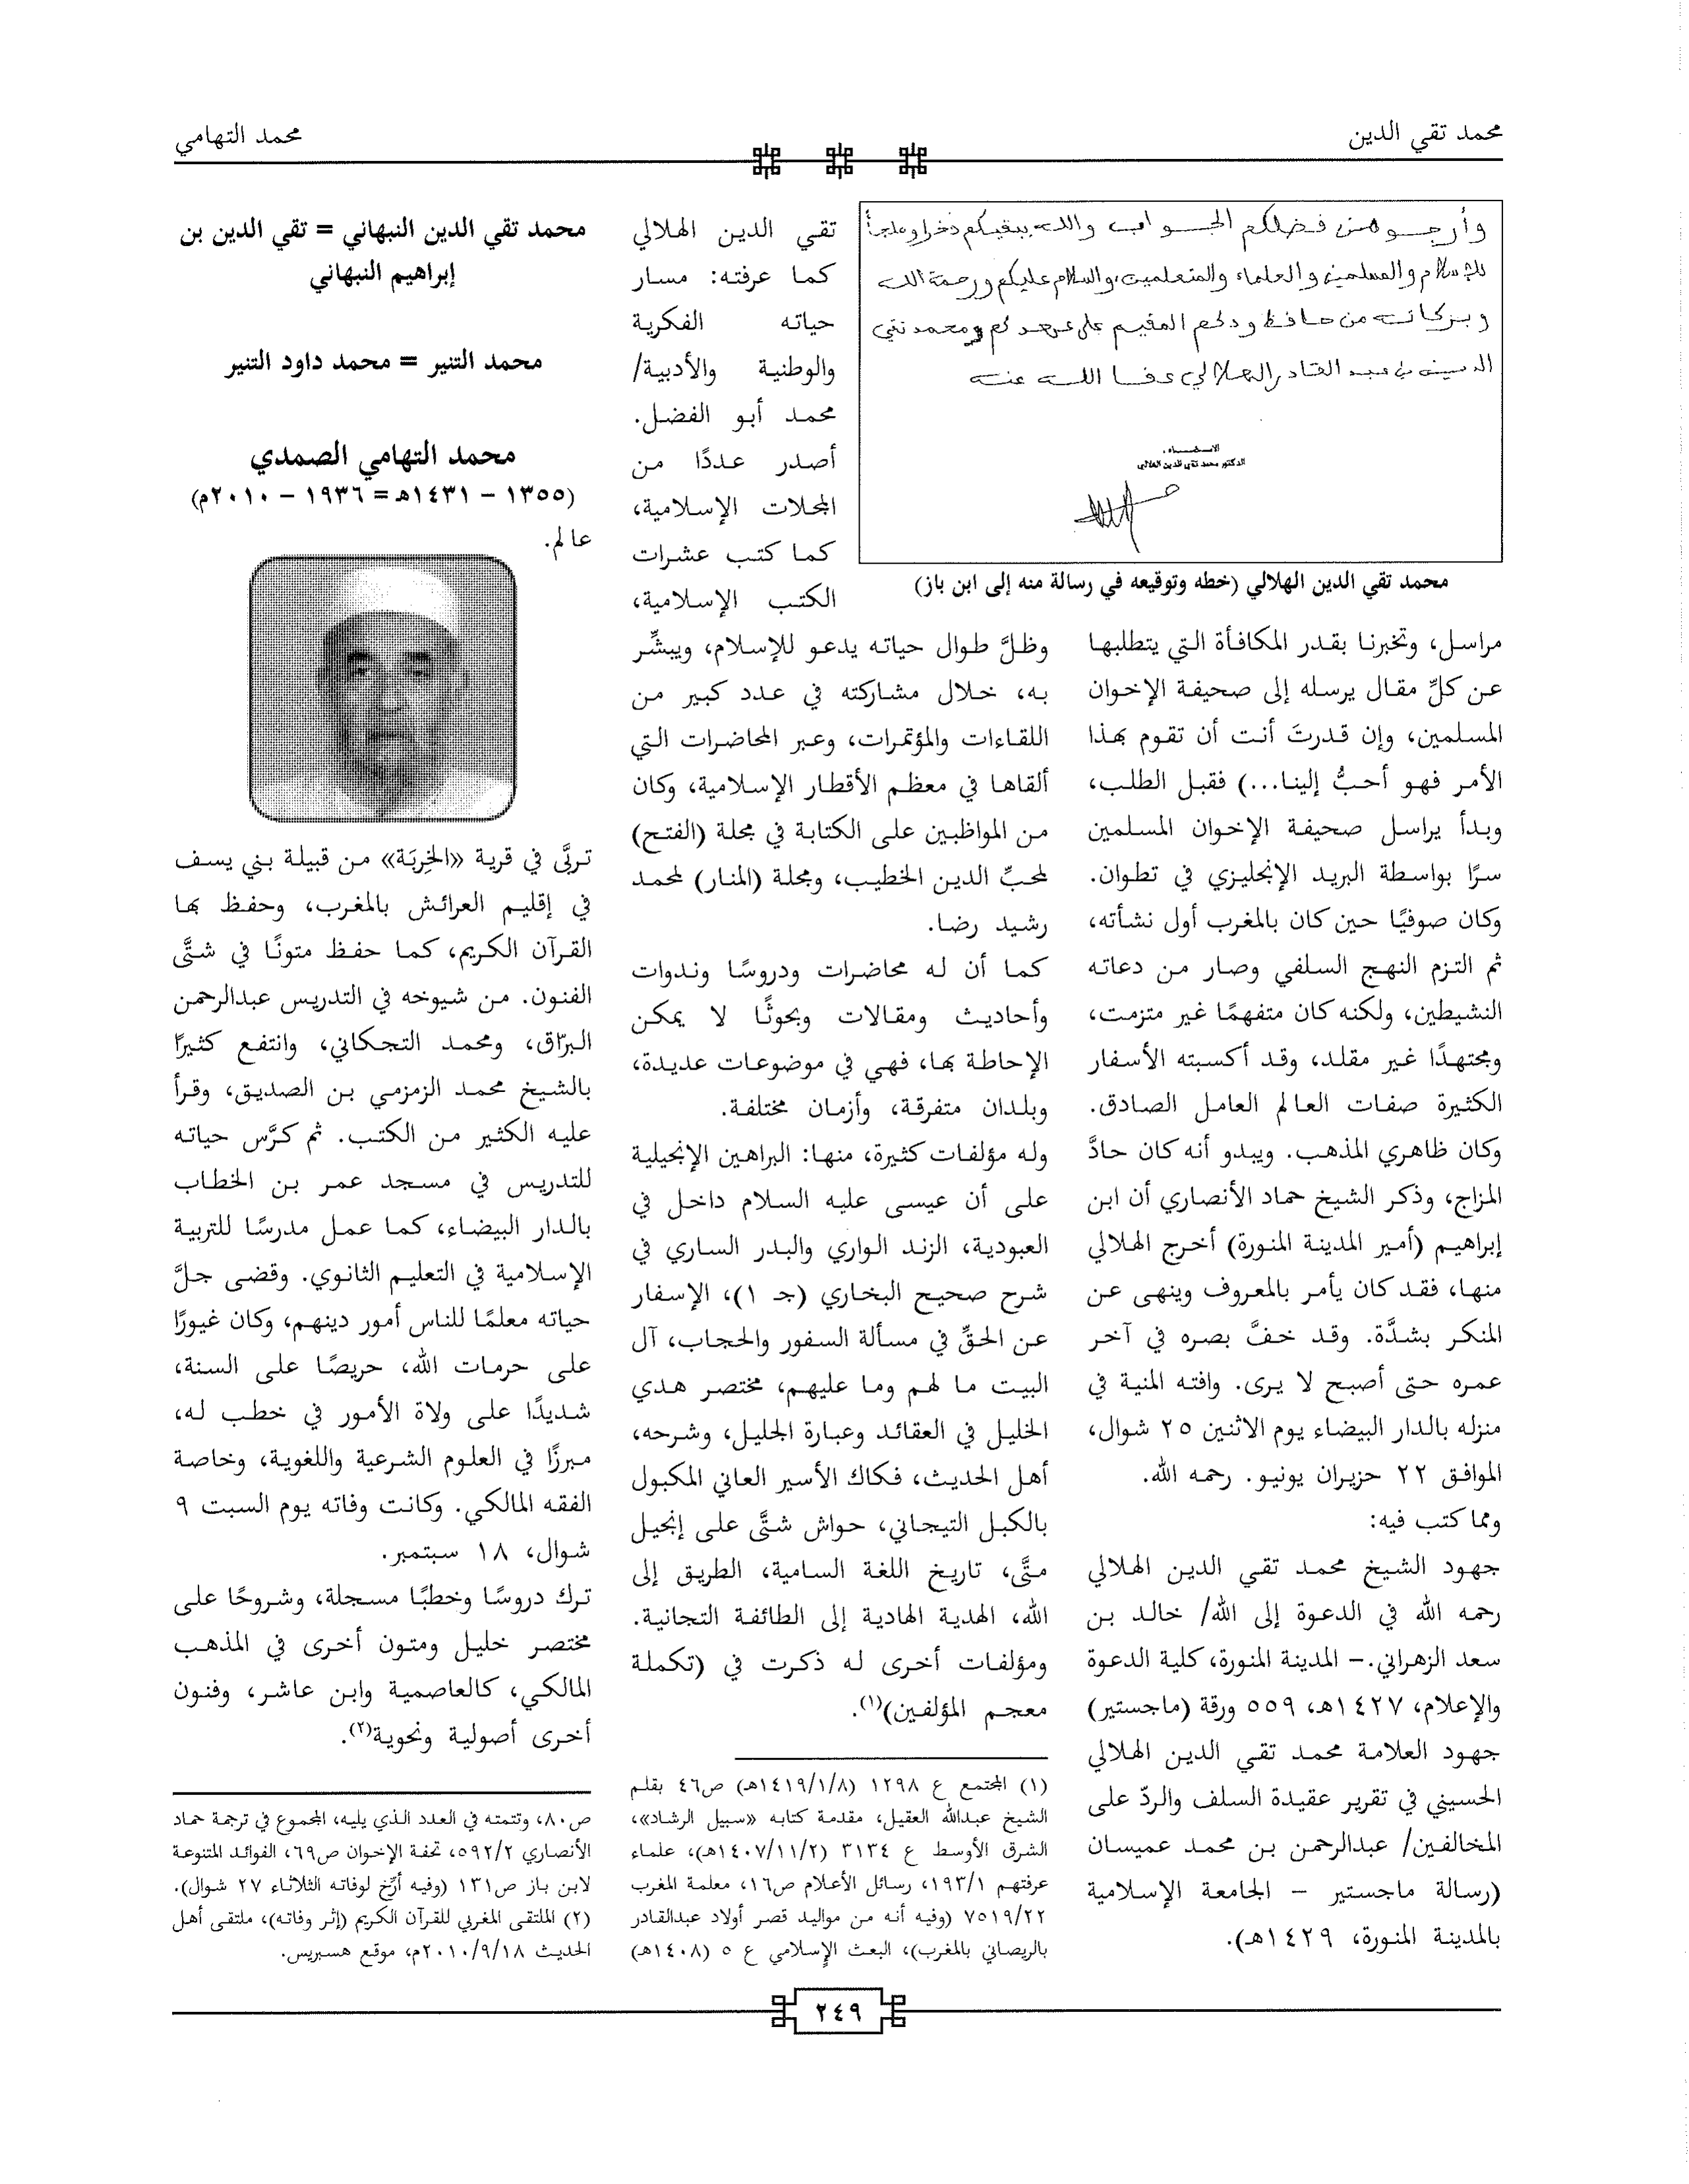 محمد تقي الدين
محمد التهامي
وأرجو من فضلكم الجواب والله يبقيكم ذخرا وملجأ
للإسلام والمسلمين والعلماء والمتعلمين، والسلام عليكم ورحمة الله
وبركاته من حافظ ودكم المقيم على عهدكم محمد تقي
الدين بن عبد القادر الهلالي عفا الله عنه
الدكتور محمد تقي الدين الهلالي
محمد تقي الدين الهلالي (خطه وتوقيعه في رسالة منه إلى ابن باز)
مراسل، وتخبرنا بقدر المكافأة التي يتطلبها
عن كلِّ مقال يرسله إلى صحيفة الإخوان
المسلمين، وإن قدرتَ أنت أن تقوم بهذا
الأمر فهو أحبُّ إلينا...) فقبل الطلب،
وبدأ يراسل صحيفة الإخوان المسلمين
سرًّا بواسطة البريد الإنجليزي في تطوان.
وكان صوفيًا حين كان بالمغرب أول نشأته،
ثم التزم النهج السلفي وصار من دعاته
النشيطين، ولكنه كان متفهمًا غير متزمت،
ومجتهدًا غير مقلد، وقد أكسبته الأسفار
الكثيرة صفات العالم العامل الصادق.
وكان ظاهري المذهب. ويبدو أنه كان حادَّ
المزاج، وذكر الشيخ حماد الأنصاري أن ابن
إبراهيم (أمير المدينة المنورة) أخرج الهلالي
منها، فقد كان يأمر بالمعروف وينهى عن
المنكر بشدَّة. وقد خفَّ بصره في آخر
عمره حتى أصبح لا يرى. وافته المنية في
منزله بالدار البيضاء يوم الاثنين ٢٥ شوال،
الموافق ٢٢ حزيران يونيو. رحمه الله.
ومما كتب فيه:
جهود الشيخ محمد تقي الدين الهلالي
رحمه الله في الدعوة إلى الله/ خالد بن
سعد الزهراني.- المدينة المنورة، كلية الدعوة
والإعلام، ١٤٢٧هـ، ٥٥٩ ورقة (ماجستير)
جهود العلامة محمد تقي الدين الهلالي
الحسيني في تقرير عقيدة السلف والردّ على
المخالفين/ عبدالرحمن بن محمد عميسان
(رسالة ماجستير – الجامعة الإسلامية
بالمدينة المنورة، ١٤٢٩هـ).
تقي الدين الهلالي
كما عرفته: مسار
حياته الفكرية
والوطنية والأدبية/
محمد أبو الفضل.
أصدر عددًا من
المجلات الإسلامية،
كما كتب عشرات
الكتب الإسلامية،
وظلَّ طوال حياته يدعو للإسلام، ويبشِّر
به، خلال مشاركته في عدد كبير من
اللقاءات والمؤتمرات، وعبر المحاضرات التي
ألقاها في معظم الأقطار الإسلامية، وكان
من المواظبين على الكتابة في مجلة (الفتح)
لمحبِّ الدين الخطيب، ومجلة (المنار) لمحمد
رشيد رضا.
كما أن له محاضرات ودروسًا وندوات
وأحاديث ومقالات وبحوثًا لا يمكن
الإحاطة بها، فهي في موضوعات عديدة،
وبلدان متفرقة، وأزمان مختلفة.
وله مؤلفات كثيرة، منها: البراهين الإنجيلية
على أن عيسى عليه السلام داخل في
العبودية، الزند الواري والبدر الساري في
شرح صحيح البخاري (جـ ١)، الإسفار
عن الحقِّ في مسألة السفور والحجاب، آل
البيت ما لهم وما عليهم، مختصر هدي
الخليل في العقائد وعبارة الجليل، وشرحه،
أهل الحديث، فكاك الأسير العاني المكبول
بالكبل التيجاني، حواش شتَّى على إنجيل
متَّى، تاريخ اللغة السامية، الطريق إلى
الله، الهدية الهادية إلى الطائفة التجانية.
ومؤلفات أخرى له ذكرت في (تكملة
معجم المؤلفين)(١).
(١) المجتمع ع ١٢٩٨ (١٤١٩/١/٨هـ) ص٤٦ بقلم
الشيخ عبدالله العقيل، مقدمة كتابه «سبيل الرشاد»،
الشرق الأوسط ع ٣١٣٤ (١٤٠٧/١١/٢هـ)، علماء
عرفتهم ١٩٣/١، رسائل الأعلام ص١٦، معلمة المغرب
٧٥١٩/٢٢ (وفيه أنه من مواليد قصر أولاد عبدالقادر
بالريصاني بالمغرب)، البعث الإسلامي ع ٥ (١٤٠٨هـ)
محمد تقي الدين النبهاني = تقي الدين بن
إبراهيم النبهاني
محمد التنير = محمد داود التنير
محمد التهامي الصمدي
(١٣٥٥ – ١٤٣١هـ = ١٩٣٦ – ٢٠١٠م)
عالم.
تربَّى في قرية «الخِربَة» من قبيلة بني يسف
في إقليم العرائش بالمغرب، وحفظ بها
القرآن الكريم، كما حفظ متونًا في شتَّى
الفنون. من شيوخه في التدريس عبدالرحمن
البرّاق، ومحمد التجكاني، وانتفع كثيرًا
بالشيخ محمد الزمزمي بن الصديق، وقرأ
عليه الكثير من الكتب. ثم كرَّس حياته
للتدريس في مسجد عمر بن الخطاب
بالدار البيضاء، كما عمل مدرسًا للتربية
الإسلامية في التعليم الثانوي. وقضى جلَّ
حياته معلمًا للناس أمور دينهم، وكان غيورًا
على حرمات الله، حريصًا على السنة،
شديدًا على ولاة الأمور في خطب له،
مبرزًا في العلوم الشرعية واللغوية، وخاصة
الفقه المالكي. وكانت وفاته يوم السبت ٩
شوال، ١٨ سبتمبر.
ترك دروسًا وخطبًا مسجلة، وشروحًا على
مختصر خليل ومتون أخرى في المذهب
المالكي، كالعاصمية وابن عاشر، وفنون
أخرى أصولية ونحوية(٢).
ص٨٠، وتتمته في العدد الذي يليه، المجموع في ترجمة حماد
الأنصاري ٥٩٢/٢، تحفة الإخوان ص٦٩، الفوائد المتنوعة
لابن باز ص١٣١ (وفيه أرِّخ لوفاته الثلاثاء ٢٧ شوال).
(٢) الملتقى المغربي للقرآن الكريم (إثر وفاته)، ملتقى أهل
الحديث ٢٠١٠/٩/١٨م، موقع هسبريس.
٢٤٩